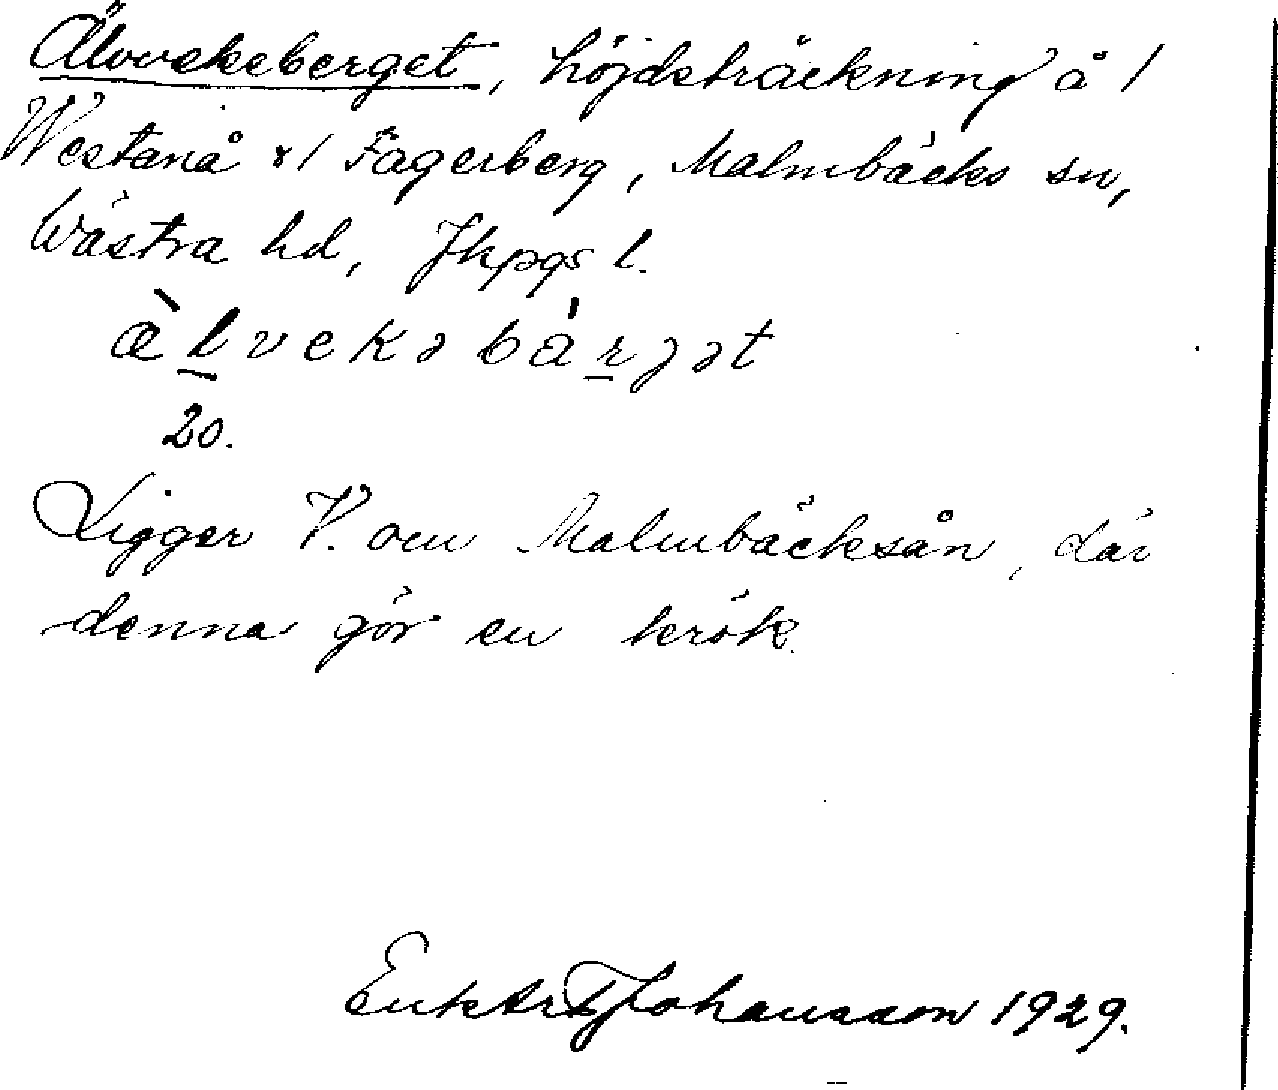 Älvvekeberget, höjdsträckning å 1
Westanå & 1 Fagerberg, Malmbäcks sn,
Västra hd, Jkpgs l.
æ̀lvekəbárjət
20.
Ligger V. om Malmbäcksån, där
denna gör en krök.
Johansson 1929.